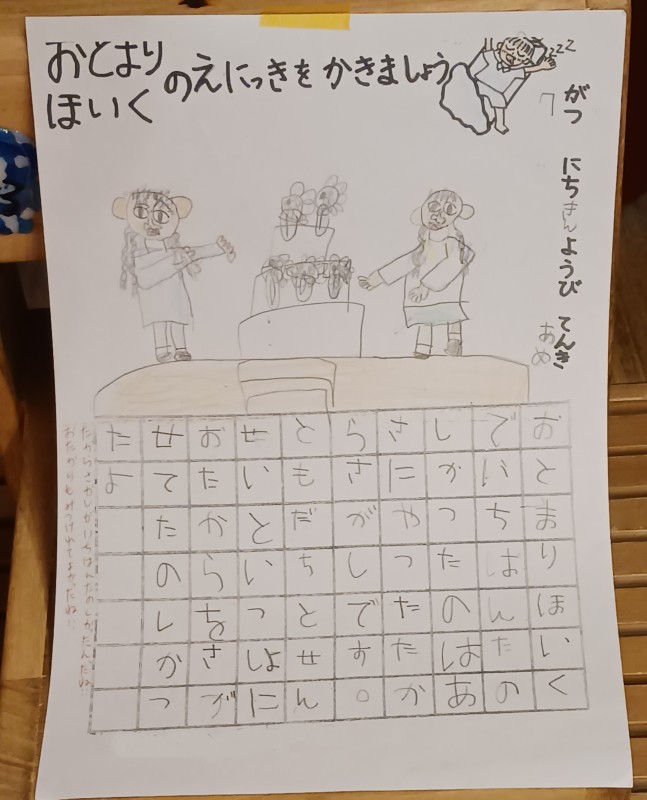 おとまり
ほいく
のえにっきを かきましょう
zzz
7がつ にち きんようび てんき あめ
おとまりほいく
でいちばんたの
しかつたのはあ
さにやったたか
らさがしです。
ともだちとせん
せいといっしょに
おたからをさが
せてたのしかつ
たよ
たからさがしがいちばんたのしかったんだね。